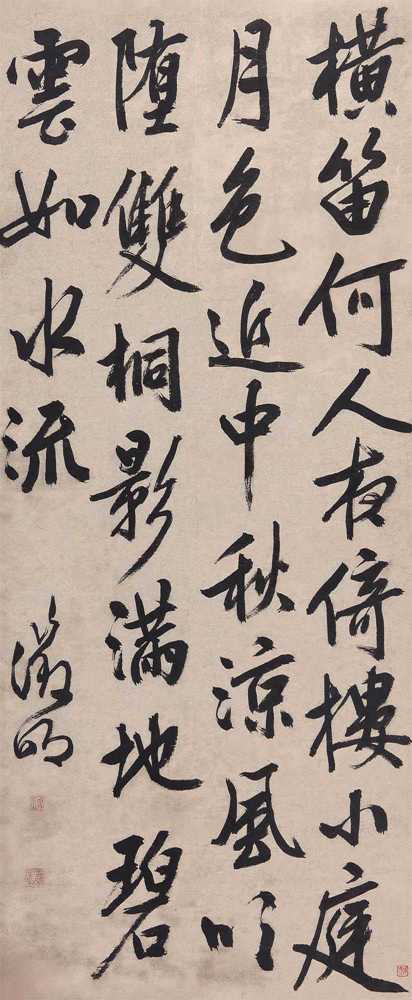 橫笛何人夜倚樓小庭
月色近中秋涼風吹
堕雙桐影滿地碧
雲如水流
徵明